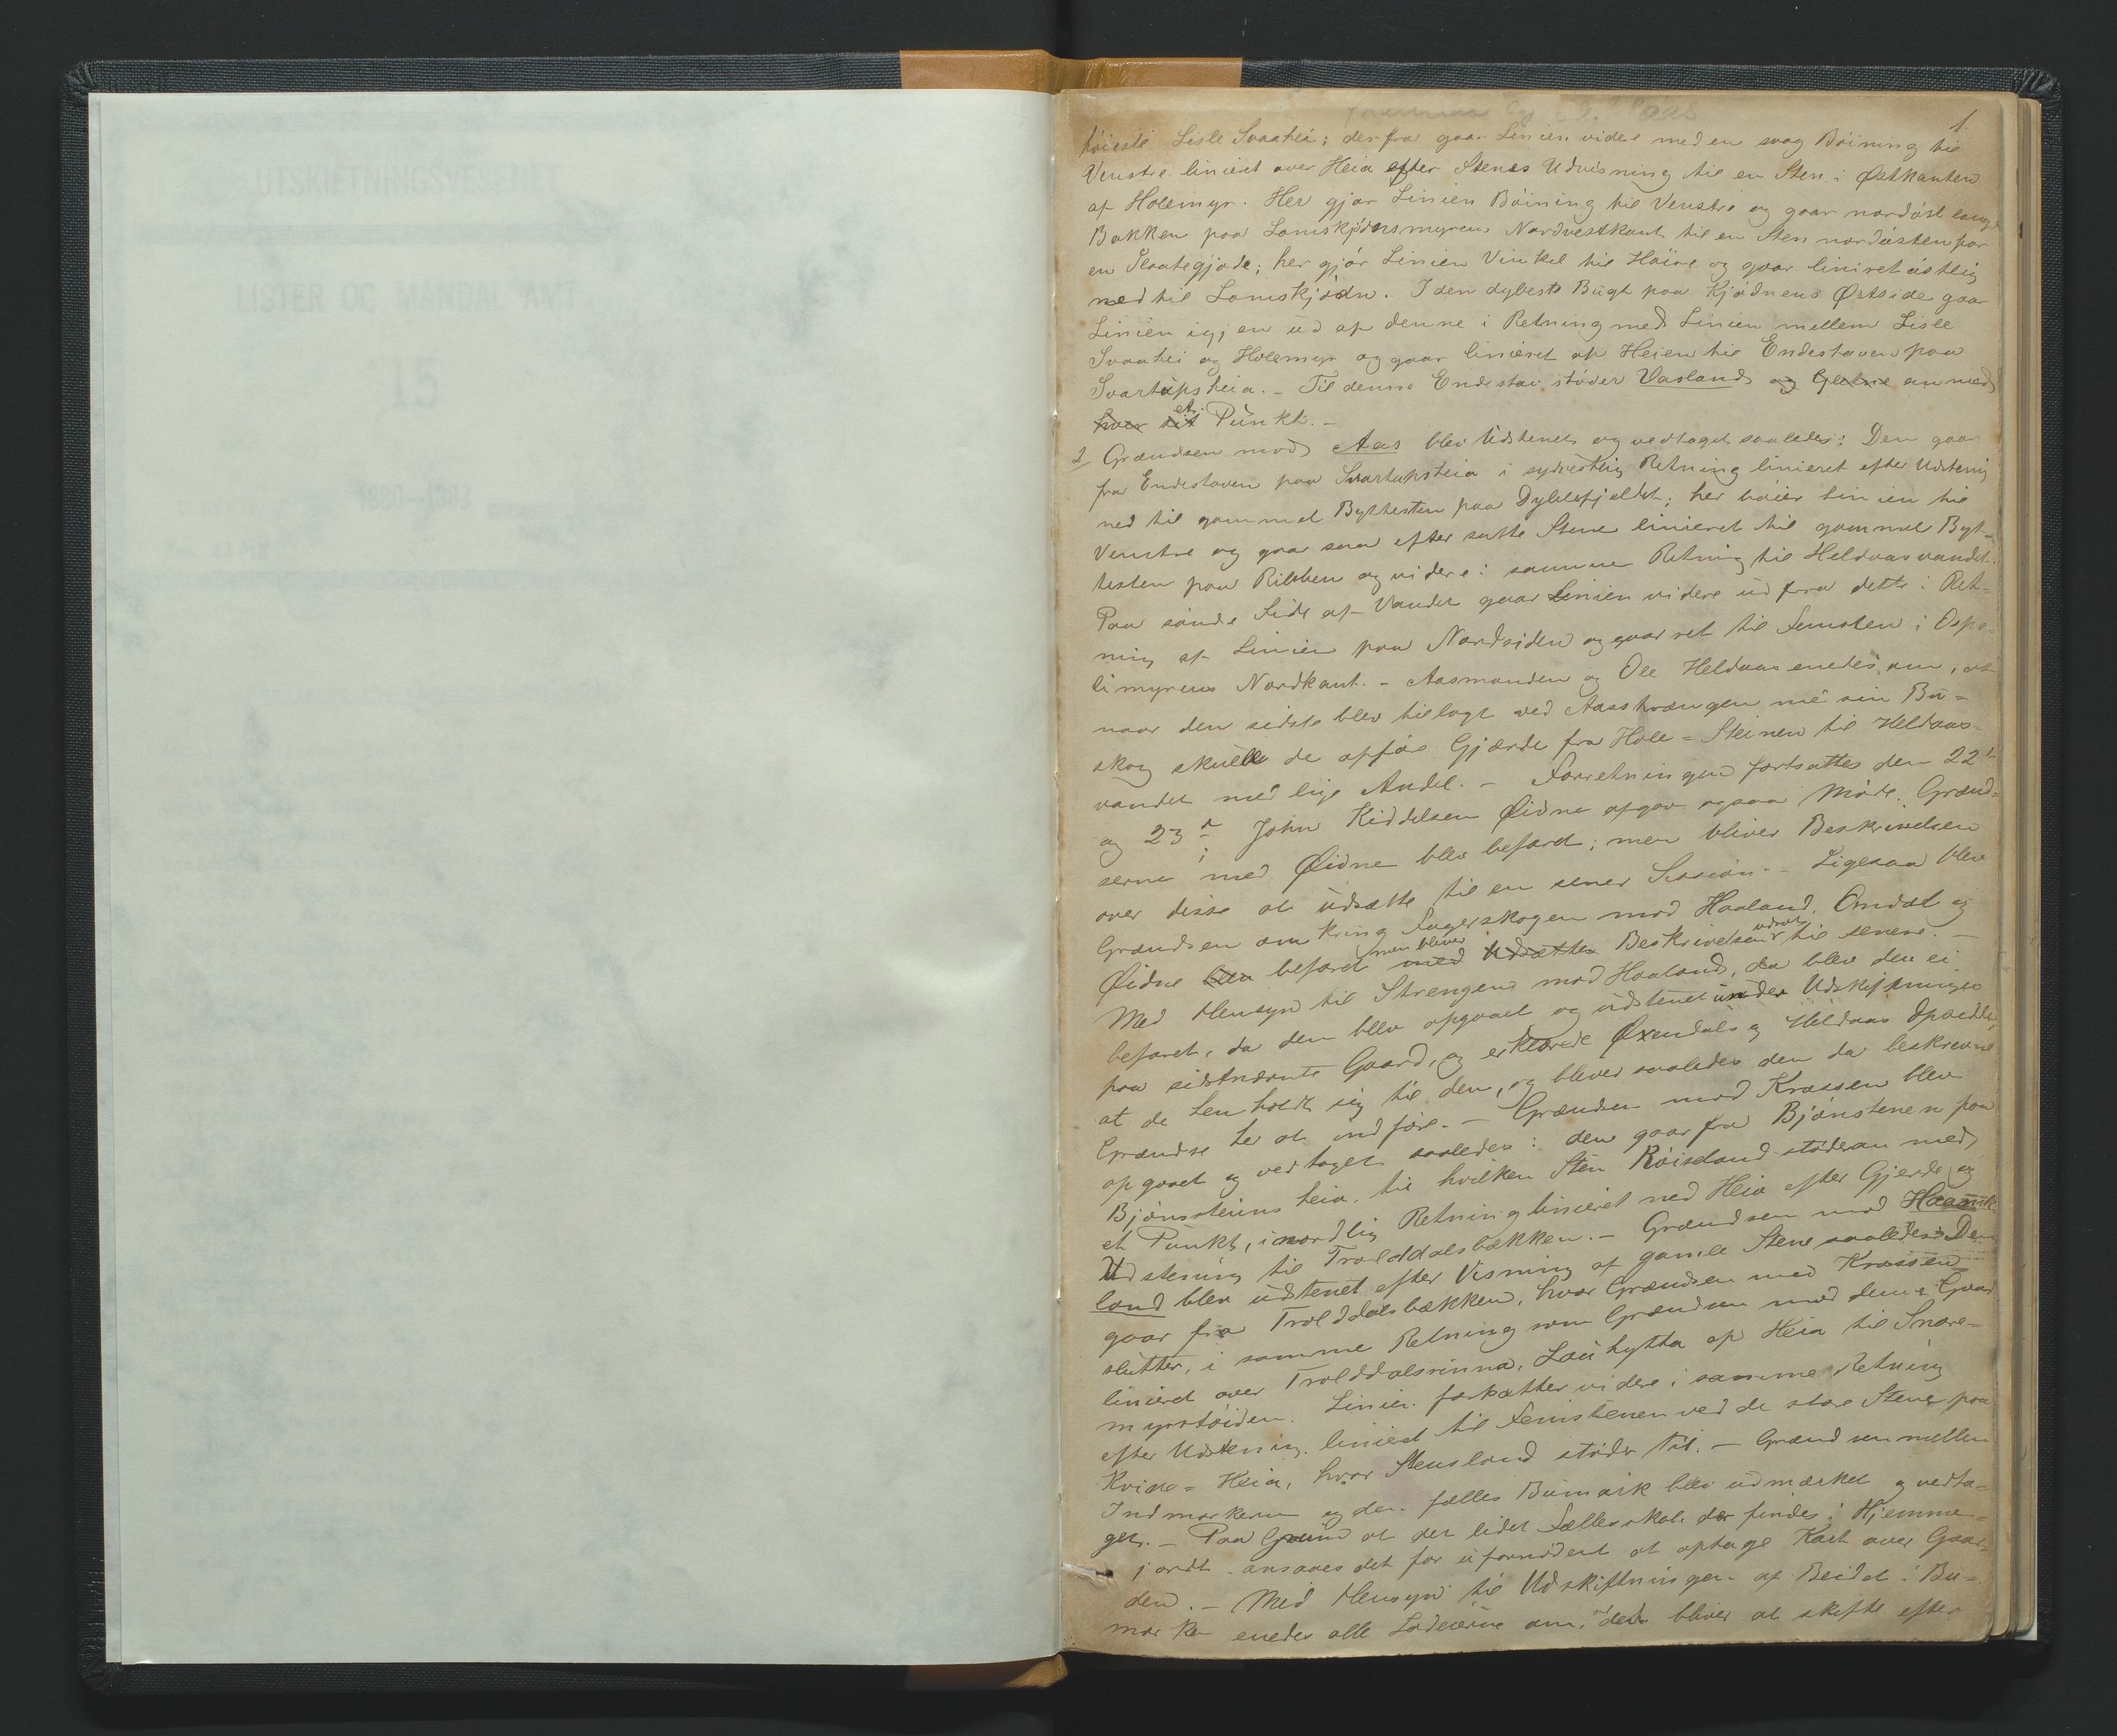 UTSKIFTNINGSVESENET
LISTER OG MANDAL AMT
15
1883-1883
1.
höieste Lisle Svaahei; derfra gaar Linien videre med en svag Böining til
Venstre liniret over Heia efter Stenes Udvisning til en Sten i Østkanten
af Holemyr. Her gjör Linien Böining til Venstre og gaar nordöst langs
Bakken paa Lomskjödnsmyrens Nordvestkant til en Sten nordösten for
en Slaategjøde; her gjör Linien Vinkel til Höire og gaar liniret östlig
ned til Lomskjödn. I den dybeste Bugt paa Kjödnens Østside gaar
Linien igjen ud af denne i Retning med Linien mellem Lisle
Svaahei og Holemyr og gaar liniret op Heien til Endestaven paa
Svartupsheia. - Til denne Endestav stöder Vasland og an med
hver sit et Punkt. -
2/ Grændsen mod Aas blev Udstenet og vedtaget saaledes: Den gaar
fra Endestaven paa Svartupsheia i sydvestlig Retning liniret efter Udstening
ned til gammel Byttesten paa Dyblefjeldet; her böier Linien til
Venstre og gaar saa efter satte Stene liniret til gammel Byt-
testen paa Ribben og videre i samme Retning til Heldaasvandet.
Paa söndre Side af Vandet gaar Linien videre ud fra dette i Ret-
ning af Linien paa Nordsiden og gaar ret til Femsten i Ospe-
limyrens Nordkant. - Aasmanden og Ole Heldaas enedes om, at
naar den sidste blev tillagt ved Aasstrængen mé sin Bu-
skog skulle de opföre Gjærde fra Hole-Steinen til Heldaas-
vandet med lige Andel. - Forretningen fortsattes den 22de
og 23de John Kiddelsen Øidne opgav ogsaa Möde. Grænd-
serne med Øidne blev befaret; men bliver Beskrivelsen
over disse at udsætte til en sener Session. - Ligesaa blev
Grændsen omkring Fagerskogen mod Haaland, Omdal og
Øidne blev befaret men bliver med Udsættes Beskrivelsen udsat til senere. -
Med Hensyn til Strengen mod Haaland, da blev den ei
befaret, da den blev opgaaet og udstenet under Udskiftningen
paa sidstnævnte Gaard, og erklærede Øxendals og Heldaas Opsiddere,
at de henholdt sig til den, og bliver saaledes den da beskrevne
Grændse her at indföre. - Grændsen mod Krossen blev
opgaaet og vedtaget saaledes: den gaar fra Bjönstenen paa
Bjönssteins heia, til hvilken Sten Röiseland stöder an med
et Punkt, i nordlig Retning liniret ned Heia efter Gjerde og
Udstening til Trolddalsbækken. - Grændsen mod
land blev udstenet efter Visning af gamle Stene saaledes: Den
gaar fra Trolddalsbækken, hvor Grændsen med Krossen
slutter, i samme Retning som Grændsen mod denne Gaard
liniret over Trolddalsrinna, Lauhytta op Heia til Snare-
myrstöiden. Linien fortsætter videre i samme Retning
efter Udstening liniret til Femstenen ved de store Stene paa
Kvixe-Heia, hvor Stensland stöder til. - Grændsen mellem
Indmarken og den fælles Bumark blev udmærket og vedta-
get. - Paa Grund at det lidet Fællesskab der findes i Hjemme-
jordt ansaaes det for ufornödent at optage Kart over Gaar-
den. - Med Hensyn til Udskiftningen af Beidet i Bu-
marken enedes alle Lodeierne om, at den bliver at skifte efter